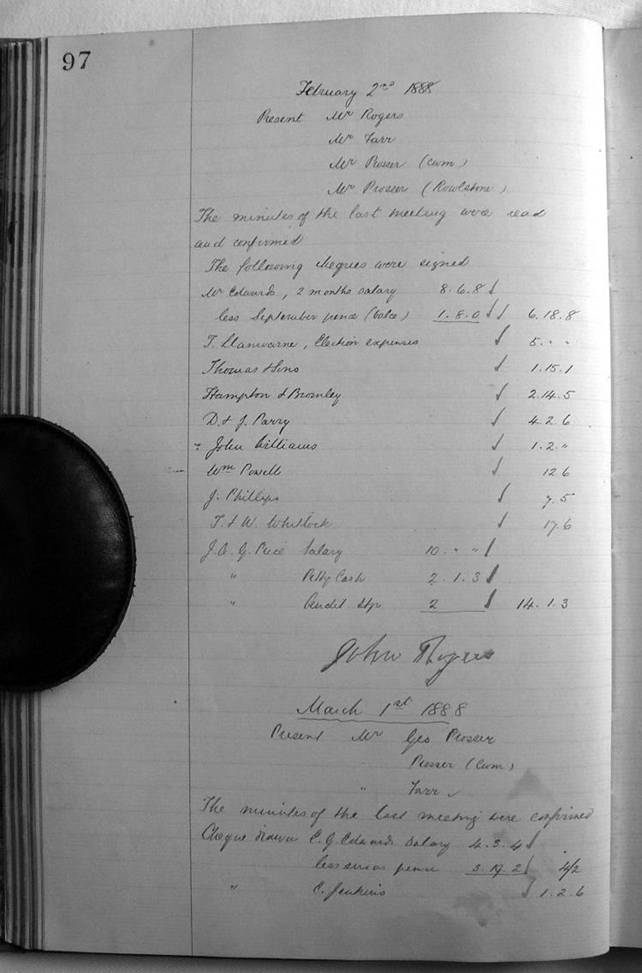 97
February 2nd 1888
Present Mr Rogers
Mr Farr
Mr Prosser (Cwm)
Mr Prosser (Rowlstone)
The minutes of the last meeting were read
and confirmed
The following cheques were signed
Mr Edwards, 2 months salary 8.6.8
less September pence (balce) 1.8.0 6.18.8
T. Llanwarne, Election expenses 5. " "
Thomas & Sons 1.15.1
Hampton & Bromley 2.14.5
D. & J. Parry 4.2.6
John Williams 1.2."
Wm Powell 12.6
J. Phillips 7.5
T. & W. Whitlock 17.6
J.A.G. Price Salary 10. " "
" Petty Cash 2.1.3
" Audit Stp 2 14.1.3
John Rogers
March 1st 1888
Present Mr Geo Prosser
Prosser (Cwm)
" Farr
The minutes of the last meeting were confirmed
Cheque drawn C. G. Edwards Salary 4.3.4
less pence 3.19.2 4/2
" C. Jenkins 1.2.6